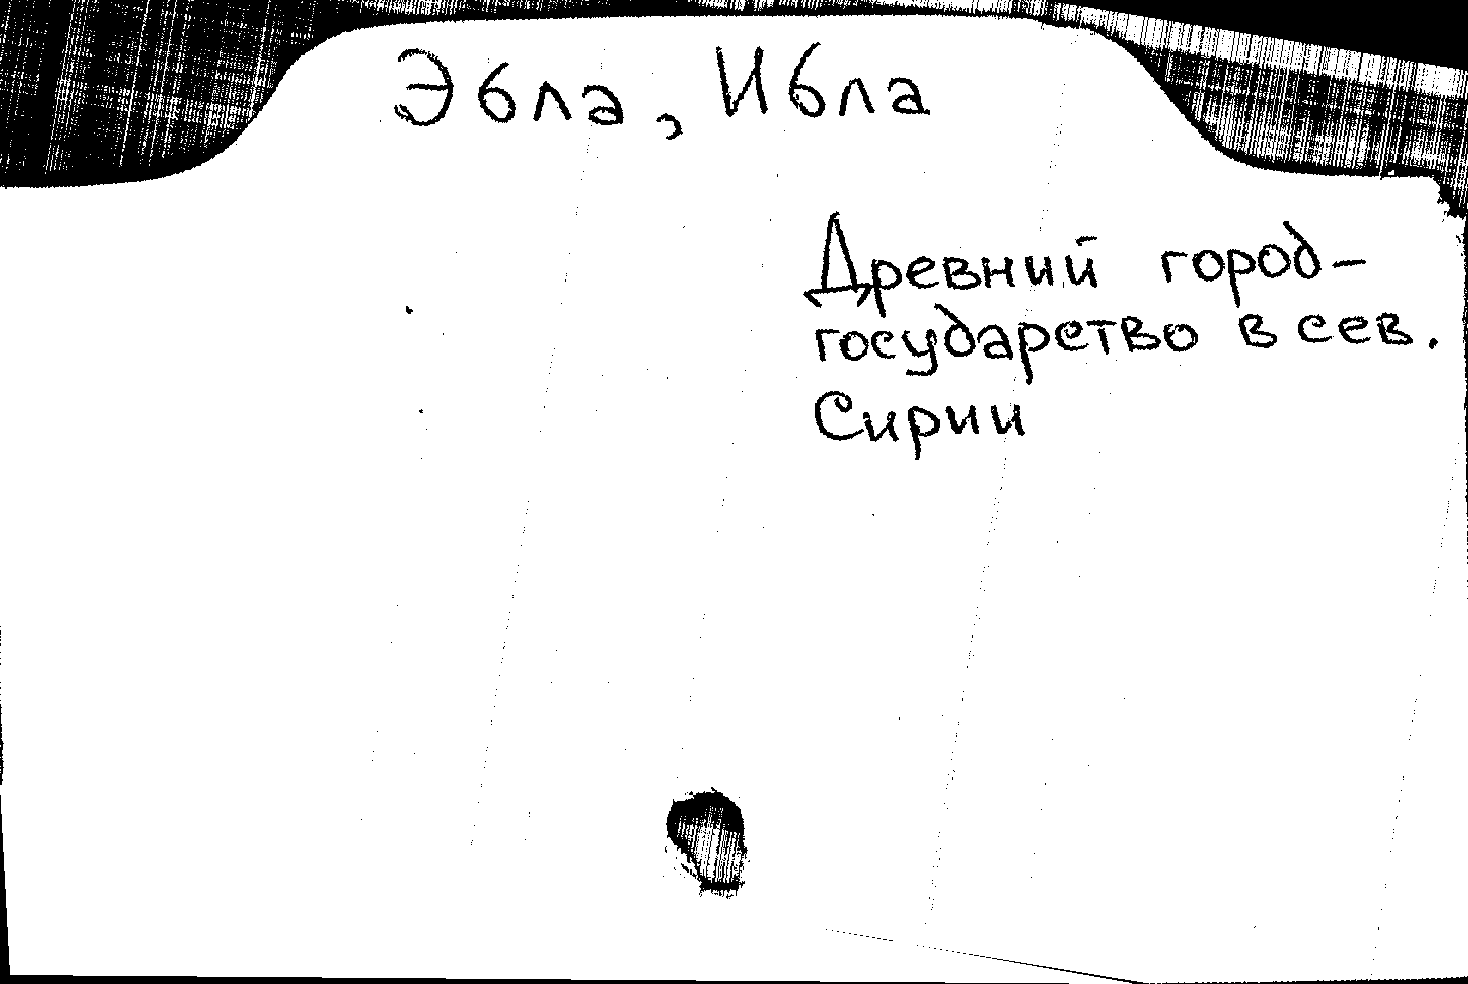 Эбла, Ибла
Древний город-
государство в сев.
Сирии